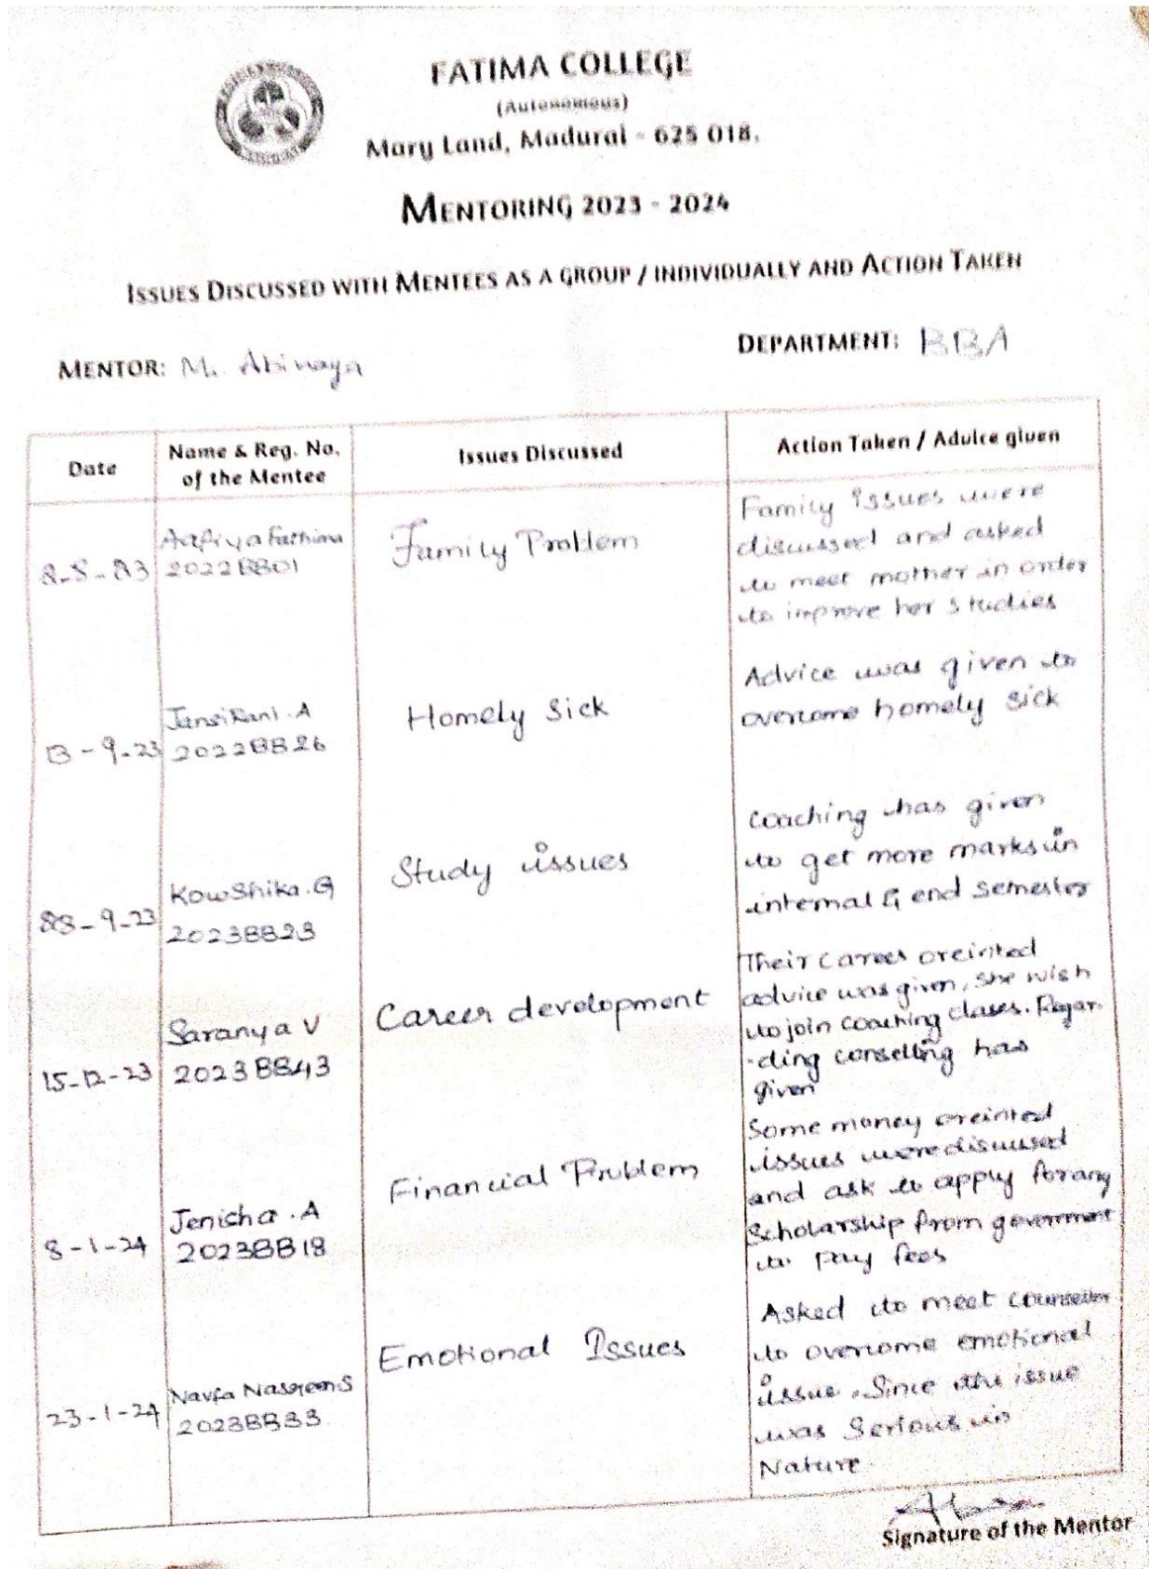 FATIMA COLLEGE
(Autonomous)
Mary Land, Madurai - 625 018.
MENTORING 2023 - 2024
ISSUES DISCUSSED WITH MENTEES AS A GROUP / INDIVIDUALLY AND ACTION TAKEN
MENTOR: M. Abinaya
DEPARTMENT: BBA
Date
Name & Reg. No.
of the Mentee
Issues Discussed
Action Taken / Advice given
Aafiya Fathima
2022BB01
Family Problem
Family issues were
discussed and asked
to meet mother in order
to improve her studies
13-9-23
JansiRani.A
2022BB26
Homely Sick
Advice was given to
overcome homely sick
Kowshika.G
2023BB23
Study issues
coaching has given
to get more marks in
internal & end semester
15-12-23
Saranya V
2023BB43
Career development
Their career oreinted
advice was given, she wish
to join coaching clases. Regar
-ding conselling has
given
8-1-24
Jenisha.A
2023BB18
Financial Problem
Some money oreinted
issues were discussed
and ask to apply for any
Scholarship from government
to pay fees
23-1-24
Nasreen S
2023BB33
Emotional Issues
Asked to meet counsellor
to overcome emotional
issue. Since the issue
was Serious in
Nature
Signature of the Mentor